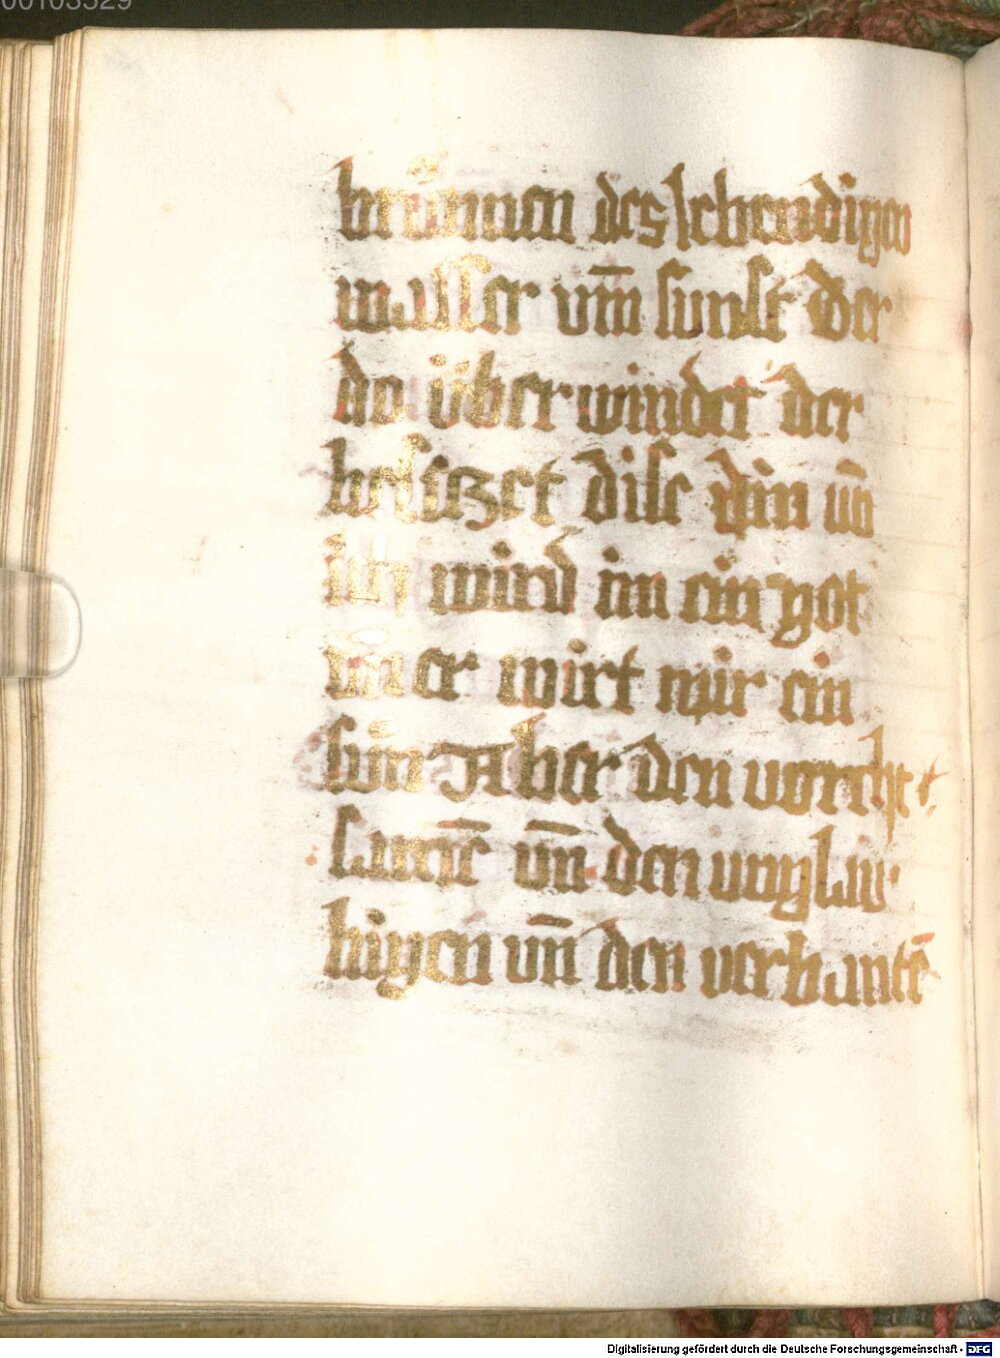 00103529
brünnen des lebendigen
wasser vm̄ sunst Der
do überwindet der
besiczet dise din vn̄
ich wird im ein got
vn̄ er wirt mir ein
sun Aber den vorcht
samē vn̄ den vnglau
bigen vn̄ den verbantē
Digitalisierung gefördert durch die Deutsche Forschungsgemeinschaft - DFG